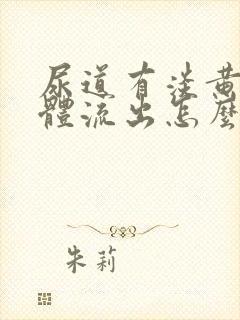 尿道有淡黄
體流出怎麼
朱莉